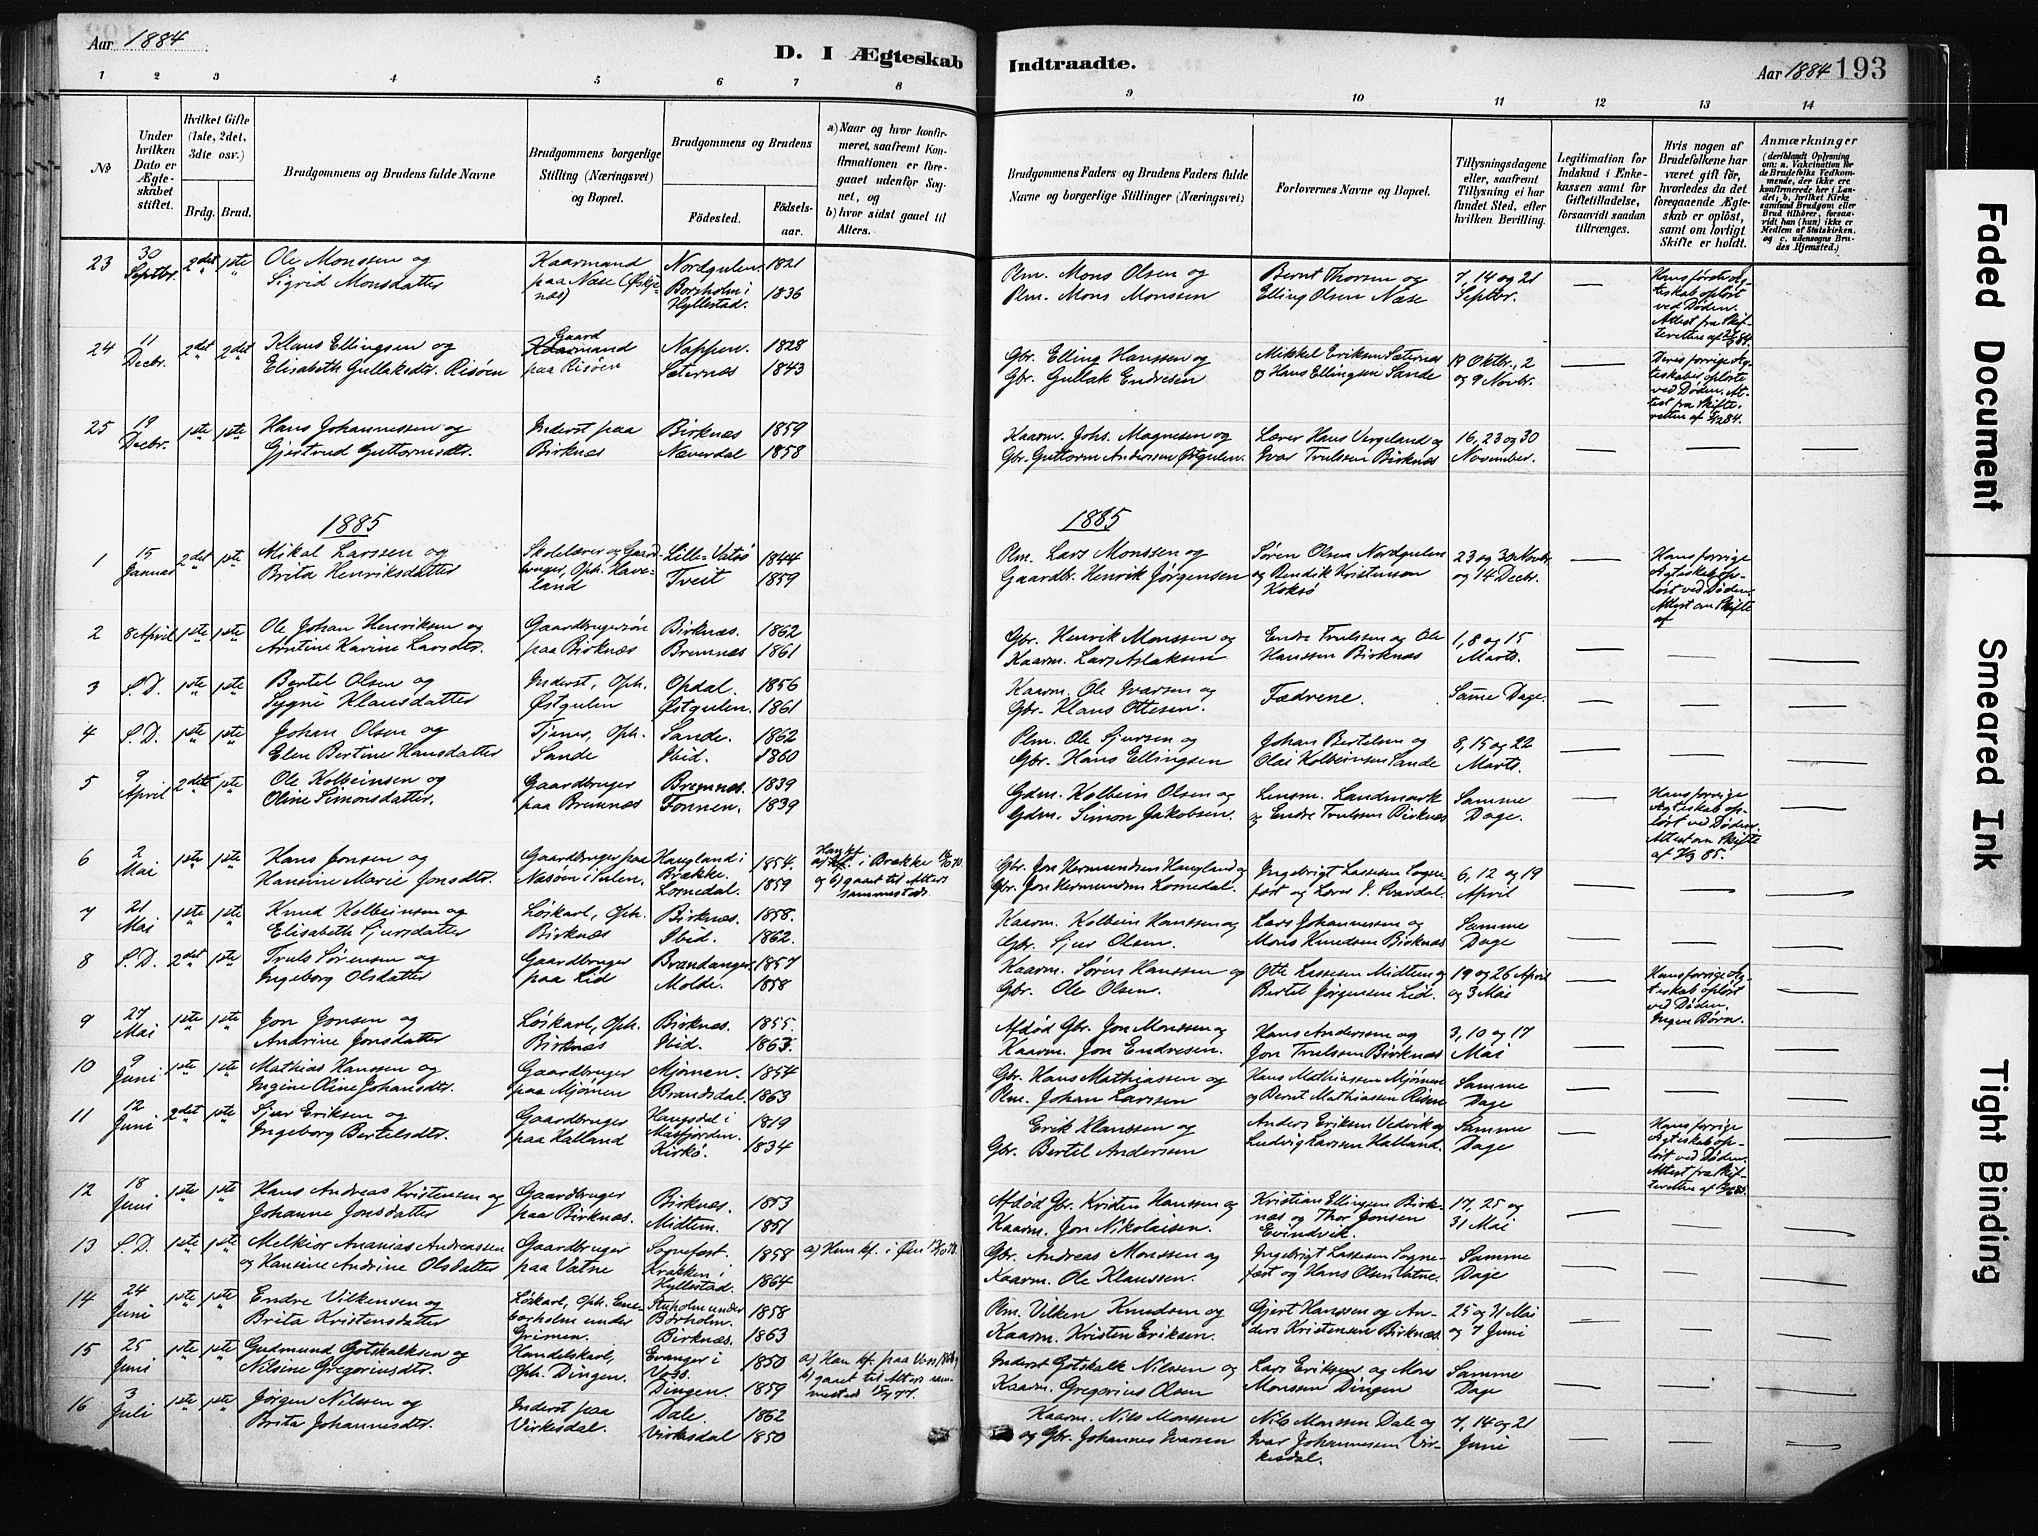 Aar 1884
D. I Ægteskab Indtraadte.
Aar 1884 193
1 2 3 4 5 6 7 8 9 10 11 12 13 14
No
Under hvilken Dato er Ægteskabet stiftet.
Hvilket Gifte (1ste, 2det, 3die osv.)
Brdg. Brud.
Brudgommens og Brudens fulde Navne
Brudgommens borgerlige Stilling (Næringsvei) og Bopæl.
Brudgommens og Brudens
Fødested. Fødselsaar.
a) Naar og hvor konfirmeret, saafremt Konfirmationen er foregaaet udenfor Sognet, og
b) hvor sidst gaaet til Alters.
Brudgommens Faders og Brudens Faders fulde Navne og borgerlige Stillinger (Næringsvei)
Forlovernes Navne og Bopæl.
Tillysningsdagene eller, saafremt Tillysning ei har fundet Sted, efter hvilken Bevilling.
Legitimation for Indskud i Enkekassen samt for Giftetilladelse, forsaavidt saadan tiltrænges.
Hvis nogen af Brudefolkene har været gift før, hvorledes da det foregaaende Ægteskab er opløst, samt om lovligt Skifte er holdt.
Anmærkninger
(deriblandt Oplysning om: a. Vakcination for de Brudefolks Vedkommende, der ikke ere konfirmerede her i Landet; b. hvilket Kirkesamfund Brudgom eller Brud tilhører, forsaavidt han (hun) ikke er Medlem af Statskirken, og c. udensogns Brudes Hjemsted.)
23 30 Septbr. 2det 1ste Ole Monssen og Sigrid Monsdatter Kaarmand paa Næse Nordgulen 1821 Borsholm i Hyllestad. 1836 Plm. Mons Olsen og Plm. Mons Monssen Bernt Thorsen og Elling Olsen Næse 7, 14 og 21 Septbr. — Hans første Ægteskab opløst ved Døden. Attest fra Skifteretten
24 11 Decbr. 2det 2det Klaus Ellingsen og Elisabeth Gullaksdtr. Risöen Gaardmand paa Risöen Nappen. 1828 Sæternes 1843 Gbr. Elling Hanssen og Gbr. Gullak Endresen Mikkel Eriksen Sæternes og Hans Ellingsen Sande 19 Oktbr., 2 og 9 Novbr. — Deres forrige Ægteskaber opløste ved Døden. Attest fra Skifteretten
25 19 Decbr. 1ste 1ste Hans Johannessen og Gjertrud Guttormsdtr. Inderst paa Birknæs Birknæs 1859 Næverdal 1858 Kaarm. Johs. Magnesen og Gbr. Guttorm Andersen Østgulen. Lærer Hans Vergeland og Ivar Trulssen Birknæs 16, 23 og 30 November. — — —
1885 1885
1 15 Januar 2det 1ste Mikal Larssen og Brita Henriksdatter Skolelærer og Gaardbruger, Oph. Haveland Lille-Vatsö 1844 Tveit 1859 Plm. Lars Monssen og Gaardbr. Henrik Jørgensen Søren Olsen Nordgulen og Bendik Kristensen Koksö 23 og 30 Novbr. og 14 Decbr. — Hans forrige Ægteskab opløst ved Døden. Attest om Skifte af
2 8 April 1ste 1ste Ole Johan Henriksen og Arntine Karine Larsdtr. Gaardbrugersøn paa Birknæs Birknæs. 1862 Bremnæs 1861 Gbr. Henrik Monssen og Kaarm. Lars Aslaksen Endre Trulssen og Ole Hanssen Birknæs 1, 8 og 15 Marts. — — —
3 S.D. 1ste 1ste Bertel Olsen og Sygni Klausdatter Inderst, Oph. Østgulen Opdal. 1856 Østgulen. 1861 Kaarm. Ole Ivarsen og Gbr. Klaus Ottesen. Fædrene. Same Dage. — — —
4 S.D. 1ste 1ste Johan Olsen og Elen Bertine Hansdatter Tjener, Oph. Sande Sande. 1862 Ibid. 1860 Plm. Ole Sjursen og Gbr. Hans Ellingsen Johan Bertelsen og Olai Kolbeinsen Sande 8, 15 og 22 Marts. — — —
5 9 April 2det 1ste Ole Kolbeinsen og Oline Simonsdatter. Gaardbruger paa Bremnæs Bremnæs. 1839 Fonnen. 1839 Gdm. Kolbein Olsen og Gdm. Simon Jakobsen. Lensm. Landmark og Endre Trulssen Birknæs Samme Dage. — Hans forrige Ægteskab opløst ved Døden. Attest om Skifte
6 2 Mai 1ste 1ste Hans Jonsen og Hansine Marie Jonsdtr. Gaardbruger paa Næsøen i Sulen. Haugland i Brække. 1854. Lomedal. 1859 i Brække og b) gaaet til Alters sammesteds. Gbr. Jon Hermundsen Haugland og Gbr. Jon Hermundsen Lomedal. Ingebrigt Lassesen Sognefæst og 6, 12 og 19 April — — —
7 21 Mai 1ste 1ste Knud Kolbeinsen og Elisabeth Sjursdatter Löskarl, Oph. Birknæs Birknæs. 1858. Ibid. 1862. Kaarm. Kolbein Hanssen og Gbr. Sjur Olsen. Lars Johannessen og Mons Knudsen Birknæs Samme Dage — — —
8 S.D. 2det 1ste Truls Sørensen og Ingeborg Olsdatter Gaardbruger paa Lid Brandanger. 1857 Molde. 1858 Kaarm. Søren Hanssen og Gbr. Ole Olsen. Otte Lassesen Midtem og Bertel Jørgensen Lid. 19 og 26 April og 3 Mai — Hans forrige Ægteskab opløst ved Døden. Ingen Børn. —
9 27 Mai 1ste 1ste Jon Jonsen og Andrine Jonsdatter Löskarl, Oph. Birknæs Birknæs. 1855. Ibid. 1863. Afdød Gbr. Jon Monssen og Kaarm. Jon Endresen. Hans Andersen og Jon Trulssen Birknæs 3, 10 og 17 Mai — — —
10 9 Juni 1ste 1ste Mathias Hanssen og Ingine Oline Johansdtr. Gaardbruger paa Mjömen Mjömen. 1854 Brandsdal. 1863 Gbr. Hans Mathiassen og Plm. Johan Larssen Hans Mathiassen Mjömen og Bernt Mathiassen Samme Dage — — —
11 12 Juni 2det 1ste Sjur Eriksen og Ingeborg Bertelsdtr. Gaardbruger paa Halland Haugsdal i Masfjorden. 1819 Kirkö. 1834 Erik Klaussen og Gbr. Bertel Andersen Anders Eriksen Vedvik og Ludvig Larssen Halland. Samme Dage — Hans forrige Ægteskab opløst ved Døden. Attest fra Skifteretten —
12 18 Juni 1ste 1ste Hans Andreas Kristensen og Johanne Jonsdatter Gaardbruger paa Birknæs. Birknæs. 1853 Midtem. 1851 Afdød Gbr. Kristen Hanssen og Kaarm. Jon Nikolaisen. Kristian Ellingsen Birknæs og Thor Jonsen Evindvik. 17, 25 og 31 Mai — — —
13 S.D. 1ste 1ste Melkior Ananias Andreassen og Hansine Andrine Olsdatter Gaardbruger paa Vatne Sognefæst. 1858 Krakken i Hyllestad. 1864 a) Hun kf. i Øen Gbr. Andreas Monssen og Kaarm. Ole Klaussen. Ingebrigt Lassesen Sognefæst og Hans Olsen Vatne. Samme Dage — — —
14 24 Juni 1ste 1ste Endre Vilkensen og Brita Kristensdatter Löskarl, Oph. under Grimen. under Børholm. 1858 Birknæs. 1863 Plm. Vilken Knudsen og Kaarm. Kristen Eriksen. Gjert Hanssen og Anders Kristensen Birknæs. 25 og 31 Mai og 7 Juni — — —
15 25 Juni 1ste 1ste Gudmund Gotskalksen og Nilsine Gregoriusdtr. Handelskarl, Oph. Dingen. Evanger i Voss. 1850 Dingen. 1859 a) Han kf. paa Voss b) gaaet til Alters sammested Inderst Gotskalk Nilssen og Kaarm. Gregorius Olsen Lars Eriksen og Mons Monssen Dingen Samme Dage — — —
16 3 Juli 1ste 1ste Jørgen Nilssen og Brita Johannesdtr. Inderst paa Virkesdal. Dale. 1862 Virkesdal 1850 Kaarm. Nils Monssen og Gbr. Johannes Ivarsen Nils Monssen Dale og Ivar Johannessen Virkesdal. 7, 14 og 21 Juni — — —
Faded Document
Smeared Ink
Tight Binding